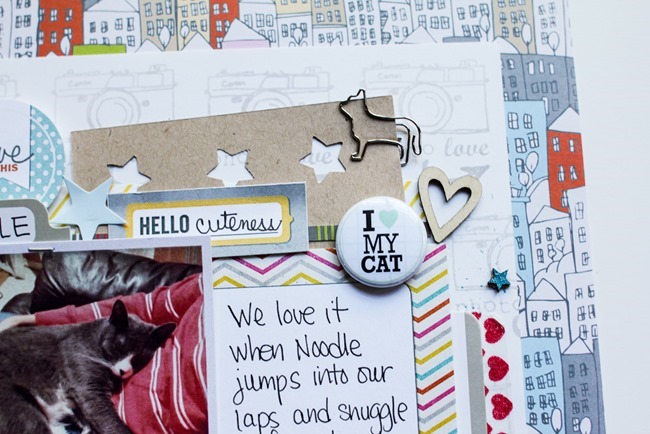 love
THIS
LE
HELLO cuteness
I
MY
CAT
We love it
when Noodle
jumps into our
laps and snuggle